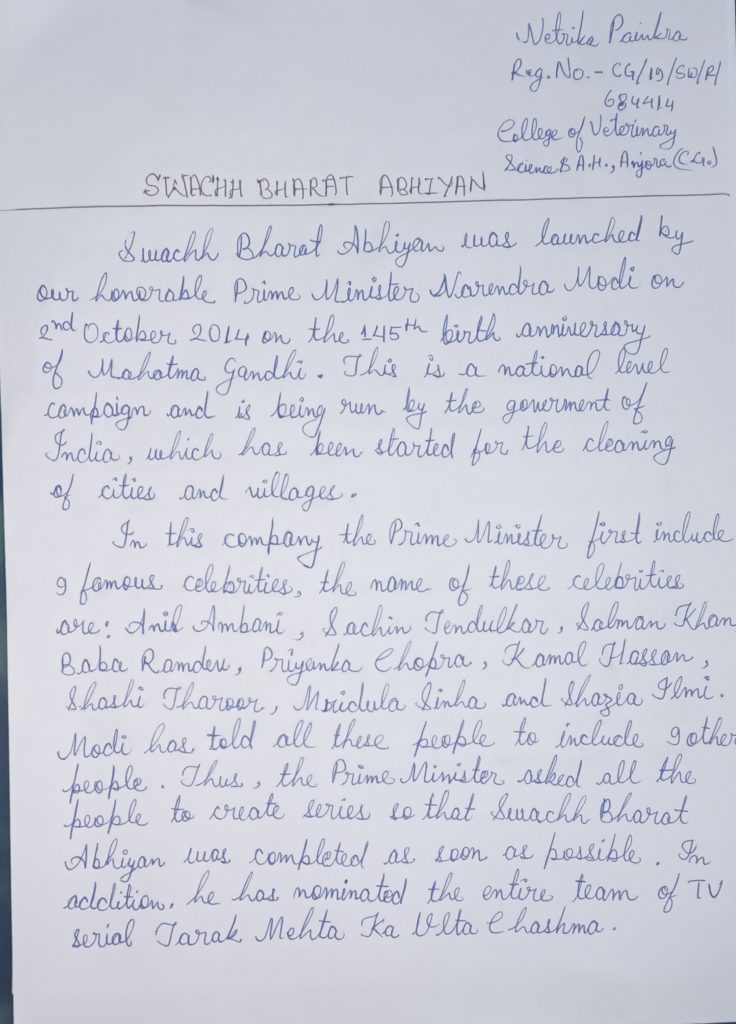 Netrika Painkra
Reg. No. - CG/19/SW/R/
684414
College of Veterinary
Science & A.H., Anjora (C.G.)
SWACHH BHARAT ABHIYAN
Swachh Bharat Abhiyan was launched by
our honorable Prime Minister Narendra Modi on
2nd October 2014 on the 145th birth anniversary
of Mahatma Gandhi. This is a national level
campaign and is being run by the goverment of
India, which has been started for the cleaning
of cities and villages.
In this company the Prime Minister first include
9 famous celebrities, the name of these celebrities
are: Anil Ambani, Sachin Tendulkar, Salman Khan
Baba Ramdev, Priyanka Chopra, Kamal Hassan,
Shashi Tharoor, Mridula Sinha and Shazia Ilmi.
Modi has told all these people to include 9 other
people. Thus, the Prime Minister asked all the
people to create series so that Swachh Bharat
Abhiyan was completed as soon as possible. In
addition, he has nominated the entire team of TV
serial Tarak Mehta Ka Ulta Chashma.